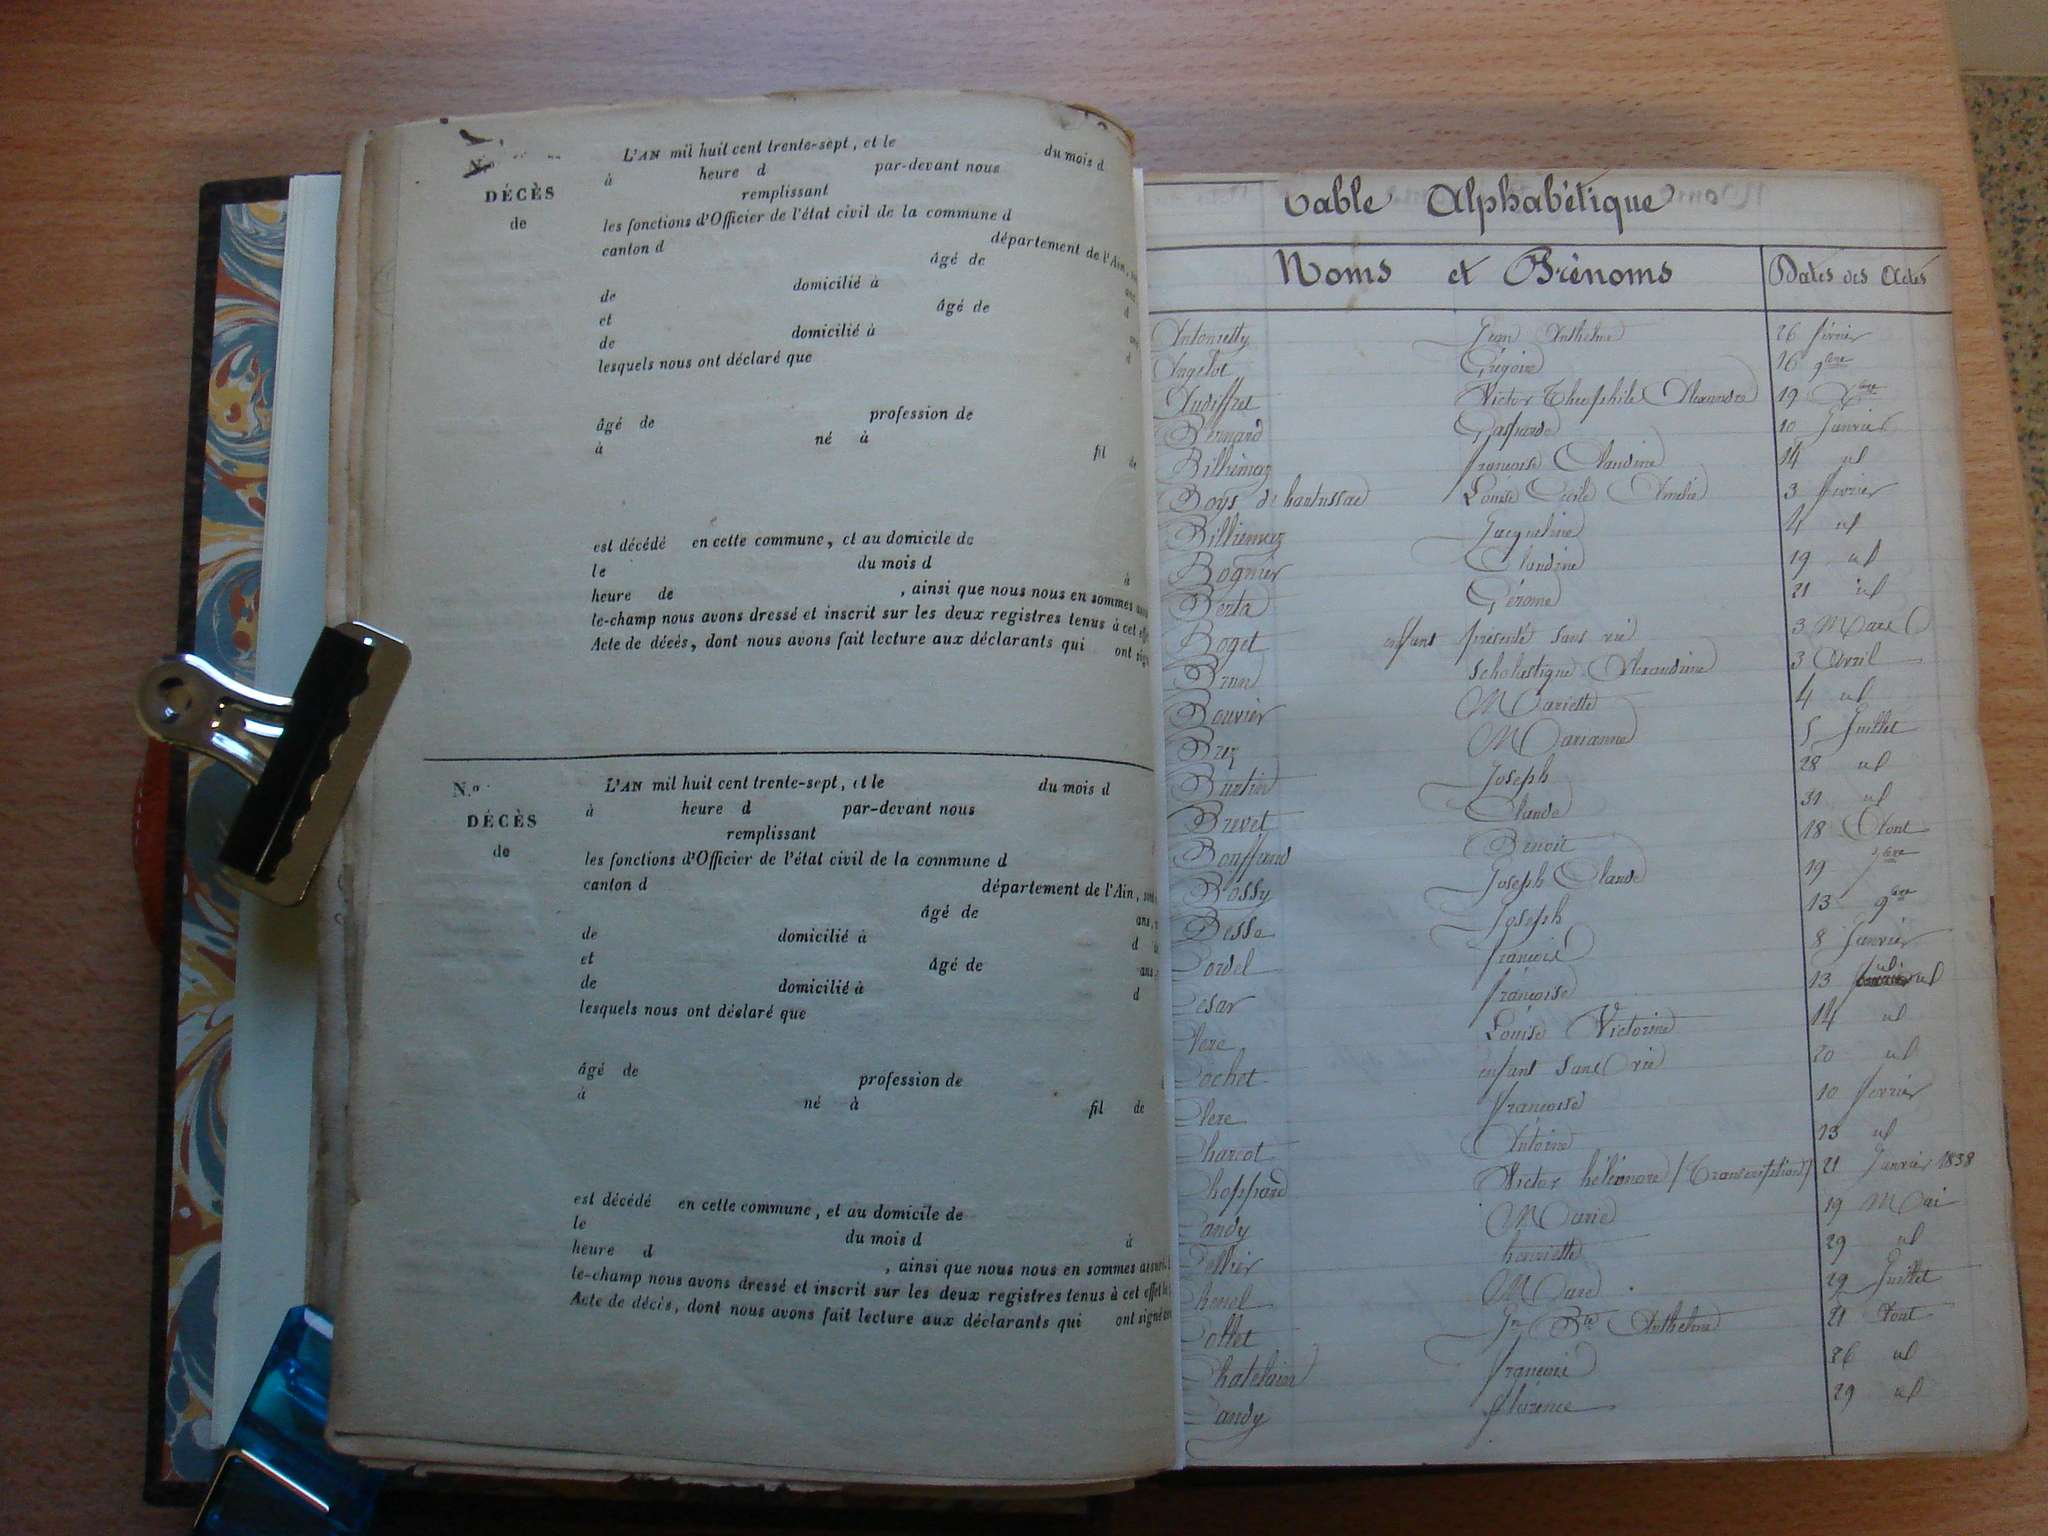 N.o L'AN mil huit cent trente-sept, et le du mois d
DÉCÈS à heure d par-devant nous
de remplissant
les fonctions d'Officier de l'état civil de la commune d
canton d département de l'Ain,
âgé de
de domicilié à
et âgé de d
de domicilié à
lesquels nous ont déclaré que d
âgé de profession de
à né à fil de
est décédé en cette commune, et au domicile de
le du mois d à
heure de , ainsi que nous nous en sommes
le-champ nous avons dressé et inscrit sur les deux registres tenus à cet
Acte de décès, dont nous avons fait lecture aux déclarants qui ont
N.o L'AN mil huit cent trente-sept, et le du mois d
DÉCÈS à heure d par-devant nous
de remplissant
les fonctions d'Officier de l'état civil de la commune d
canton d département de l'Ain,
âgé de ans,
de domicilié à d
et âgé de ans
de domicilié à d
lesquels nous ont déclaré que
âgé de profession de
à né à fil de
est décédé en cette commune, et au domicile de
le du mois d à
heure d , ainsi que nous nous en sommes
le-champ nous avons dressé et inscrit sur les deux registres tenus à cet effet
Acte de décès, dont nous avons fait lecture aux déclarants qui ont signé
Table Alphabétique
Noms et Prénoms Dates des Actes
Antonietty Jean Anthelme 26 février
Angelot Grégoire 16 9bre
Audiffret Victor Théophile Alexandre 19 Xbre
Bernard Gasparde 10 Janvier
Billiemaz françoise Claudine 14 id
Boys de hautussac Louise Cécile Amélie 3 février
Billiemaz Jacqueline 11 id
Bognier Claudine 19 id
Berta Gérome 21 id
Roget enfant présenté sans vie 3 Mars
Brun Scholastique Alexandrine 3 Avril
Bouvier Mariette 4 id
Brez Marianne 5 Juillet
Burtin Joseph 28 id
Brevet Claude 31 id
Bouffand Benoit 18 Aout
Bossy Joseph Claude 19 7bre
Besse Joseph 13 9bre
Cordel françois 8 Janvier
Cesar françoise 13 id
Clere Louise Victorine 14 id
Cochet enfant sans vie 20 id
Clere françoise 10 février
Charcot Antoine 13 id
Choppard Victor héléonore (Transcription) 21 Janvier 1838
Candy Marie 19 Mai
Collier henriette 29 id
Chenel Marc 29 Juillet
Collet Jn Bte Anthelme 21 Aout
Chatelain françois 26 id
Candy florence 29 id